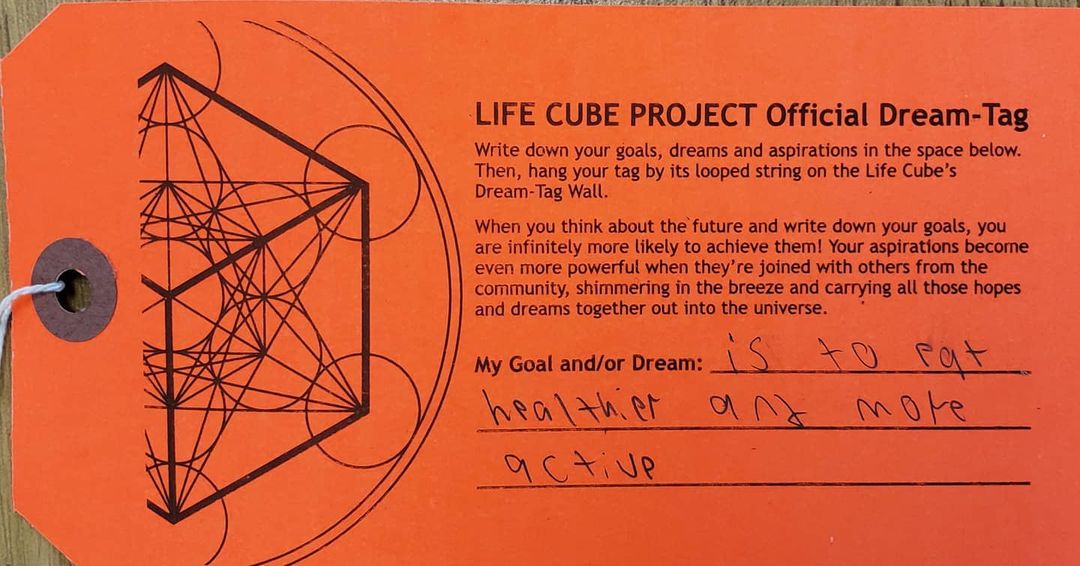 LIFE CUBE PROJECT Official Dream-Tag
Write down your goals, dreams and aspirations in the space below.
Then, hang your tag by its looped string on the Life Cube's
Dream-Tag Wall.
When you think about the future and write down your goals, you
are infinitely more likely to achieve them! Your aspirations become
even more powerful when they're joined with others from the
community, shimmering in the breeze and carrying all those hopes
and dreams together out into the universe.
My Goal and/or Dream: is to eat
healthier and more
active